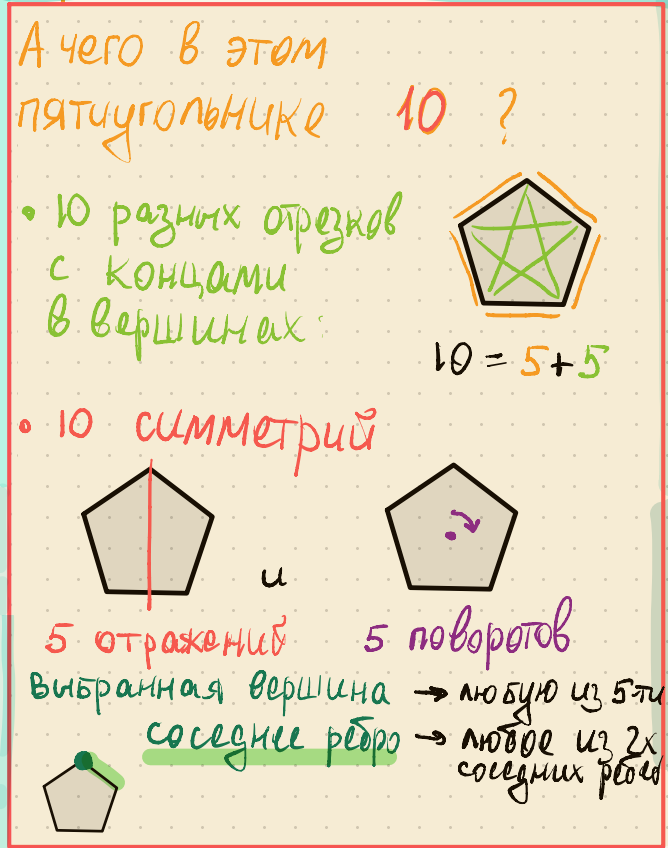 А чего в этом
пятиугольнике 10 ?
• 10 разных отрезков
с концами
в вершинах
10 = 5+5
• 10 симметрий
и
5 отражений 5 поворотов
Выбранная вершина → любую из 5ти
соседнее ребро → любое из 2х
соседних рёбер